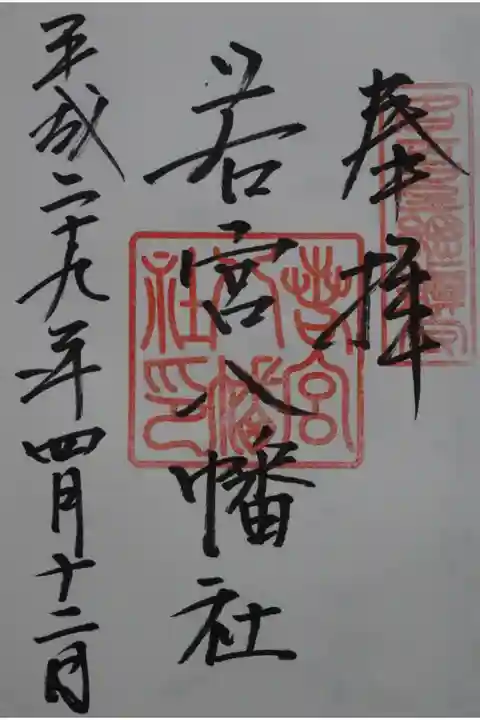 奉拝
若宮八幡社
若宮八幡社印
平成二十九年四月十二日